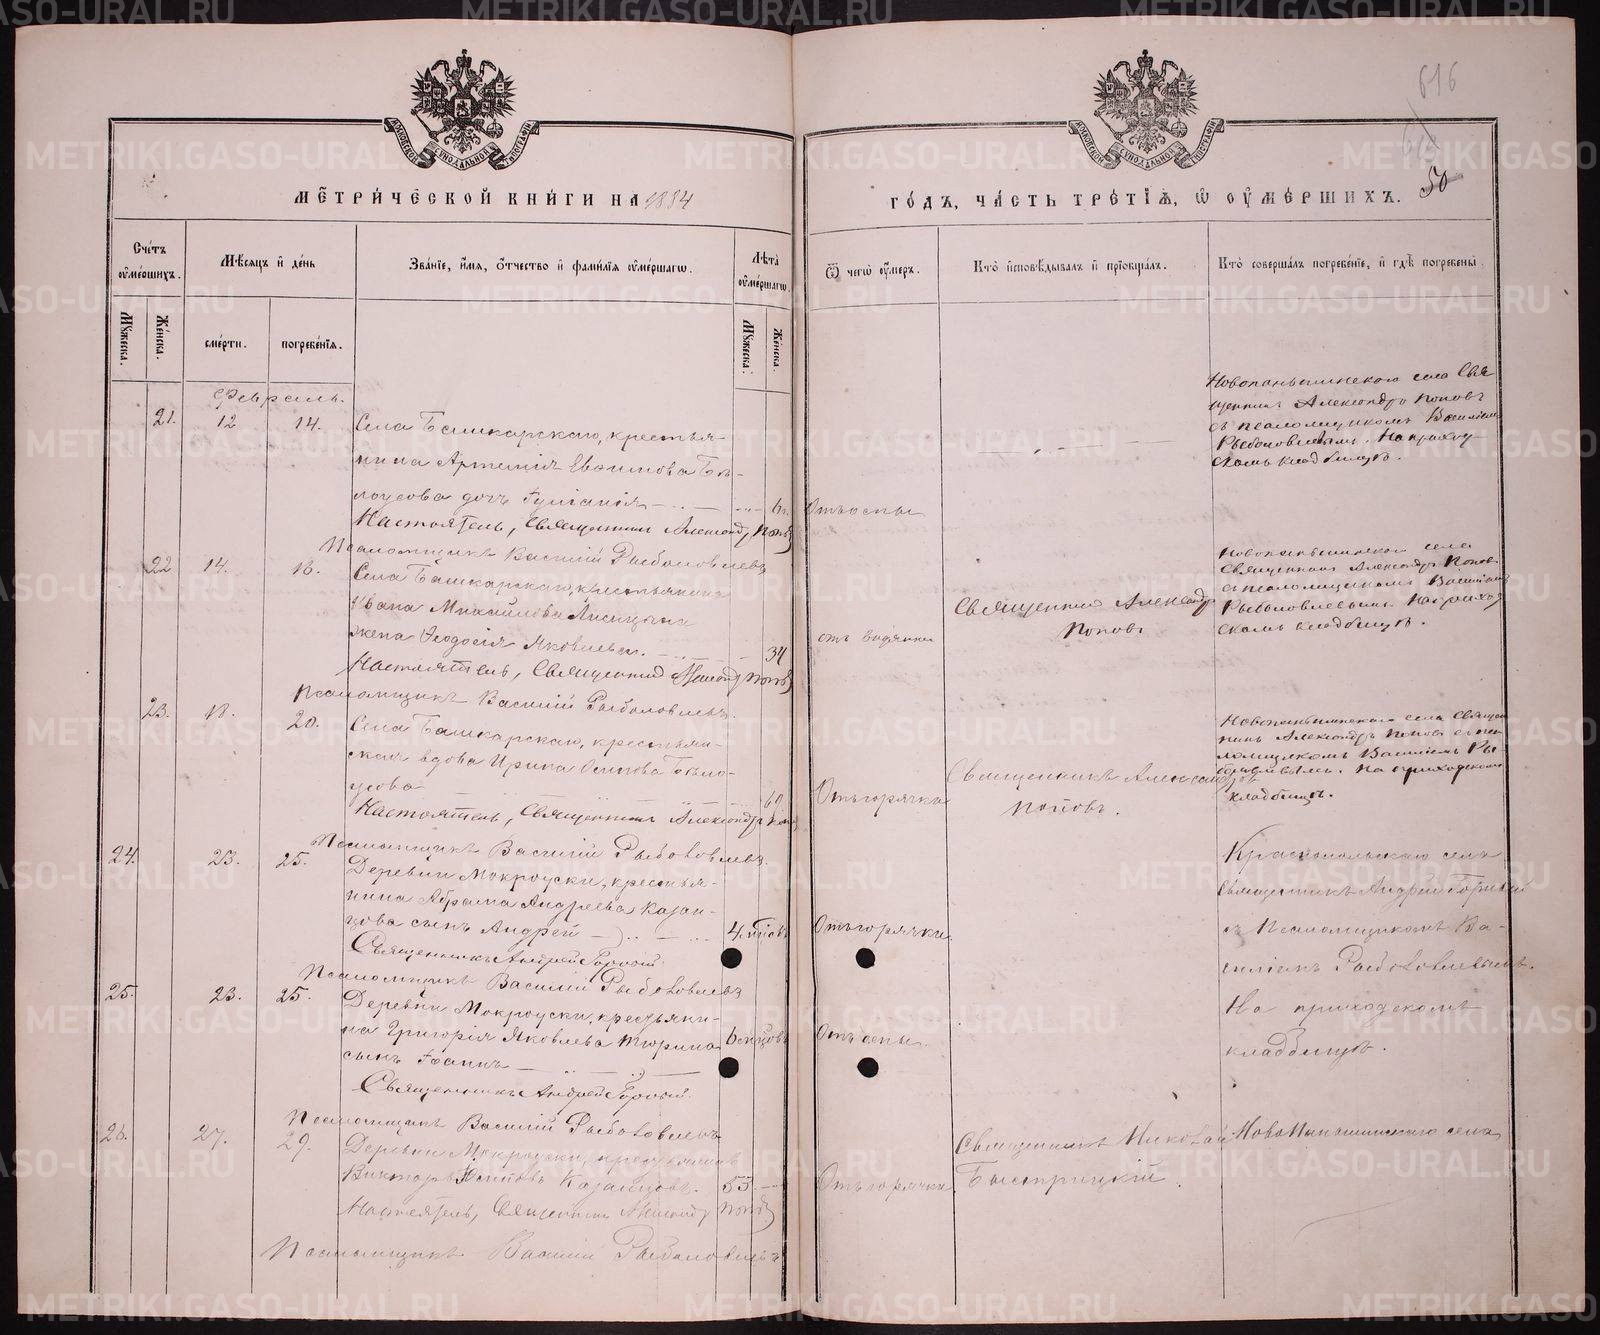 616
50
МЕТРИЧЕСКОЙ КНИГИ НА 1884
ГОДЪ, ЧАСТЬ ТРЕТІЯ, Ѡ ОУМЕРШИХЪ.
Счетъ оумершихъ.
Мѣсяцъ и день
Званіе, имя, отчество и фамилія оумершагѡ.
Лѣта оумершагѡ.
Ѿ чегѡ оумеръ.
Кто исповѣдывалъ и пріобщалъ.
Кто совершалъ погребеніе, и гдѣ погребены.
Мужеска.
Женска.
смерти.
погребенія.
Мужеска.
Женска.
Февраль.
21. 12 14. Села Башкарскаго, крестья-
нина Артемія Евѳимова Бѣ-
лоусова дочь
Отъ оспы
Новопаньшинскаго села Свя-
щенникъ Александръ Поповъ
съ псаломщикомъ Василіемъ
Рыболовлевымъ. На приход-
скомъ кладбищѣ.
Настоятель, Священникъ Александръ Поповъ
Псаломщикъ Василій Рыболовлевъ
22 14. Села Башкарскаго, крестьянина
Ивана Михайлова Лисицына
жена Ѳеодосія Яковлева. 34
отъ водянки
Священникъ Александръ
Поповъ
Новопаньшинскаго села
Священникъ Александръ Поповъ
съ псаломщикомъ Василіемъ
Рыболовлевымъ. На приход-
скомъ кладбищѣ.
Настоятель, Священникъ Александръ Поповъ
Псаломщикъ Василій Рыболовлевъ
23. 18. 20. Села Башкарскаго, крестьян-
ская вдова Ирина Осипова Бѣло-
усова 60
Отъ горячки
Священникъ Александръ
Поповъ.
Новопаньшинскаго села Священ-
никъ Александръ Поповъ съ пса-
ломщикомъ Василіемъ Ры-
боловлевымъ. На приходскомъ
кладбищѣ.
Настоятель, Священникъ Александръ Поповъ
Псаломщикъ Василій Рыболовлевъ
24. 23. 25. Деревни Мокроуски, крестья-
нина Абрама Андреева Казан-
цова сынъ Андрей 4. мѣсяц.
Отъ горячки
Краснопольскаго села
Священникъ Андрей Горный
съ Псаломщикомъ Ва-
силіемъ Рыболовлевымъ.
На приходскомъ
кладбищѣ.
Священникъ Андрей Горный
Псаломщикъ Василій Рыболовлевъ
25. 23. 25. Деревни Мокроуски, крестьяни-
на Григорія Яковлева Тюрина
сынъ Іоаннъ
Отъ оспы.
Священникъ Андрей Горный
Псаломщикъ Василій Рыболовлевъ
26. 27. 29. Деревни Мокроуски, крестьянинъ
Викторъ Казанцовъ. 53.
Отъ горячки
Священникъ Николай
Быстрицкій.
Новопаньшинскаго села
Настоятель, Священникъ Александръ Поповъ
Псаломщикъ Василій Рыболовлевъ
METRIKI.GASO-URAL.RU